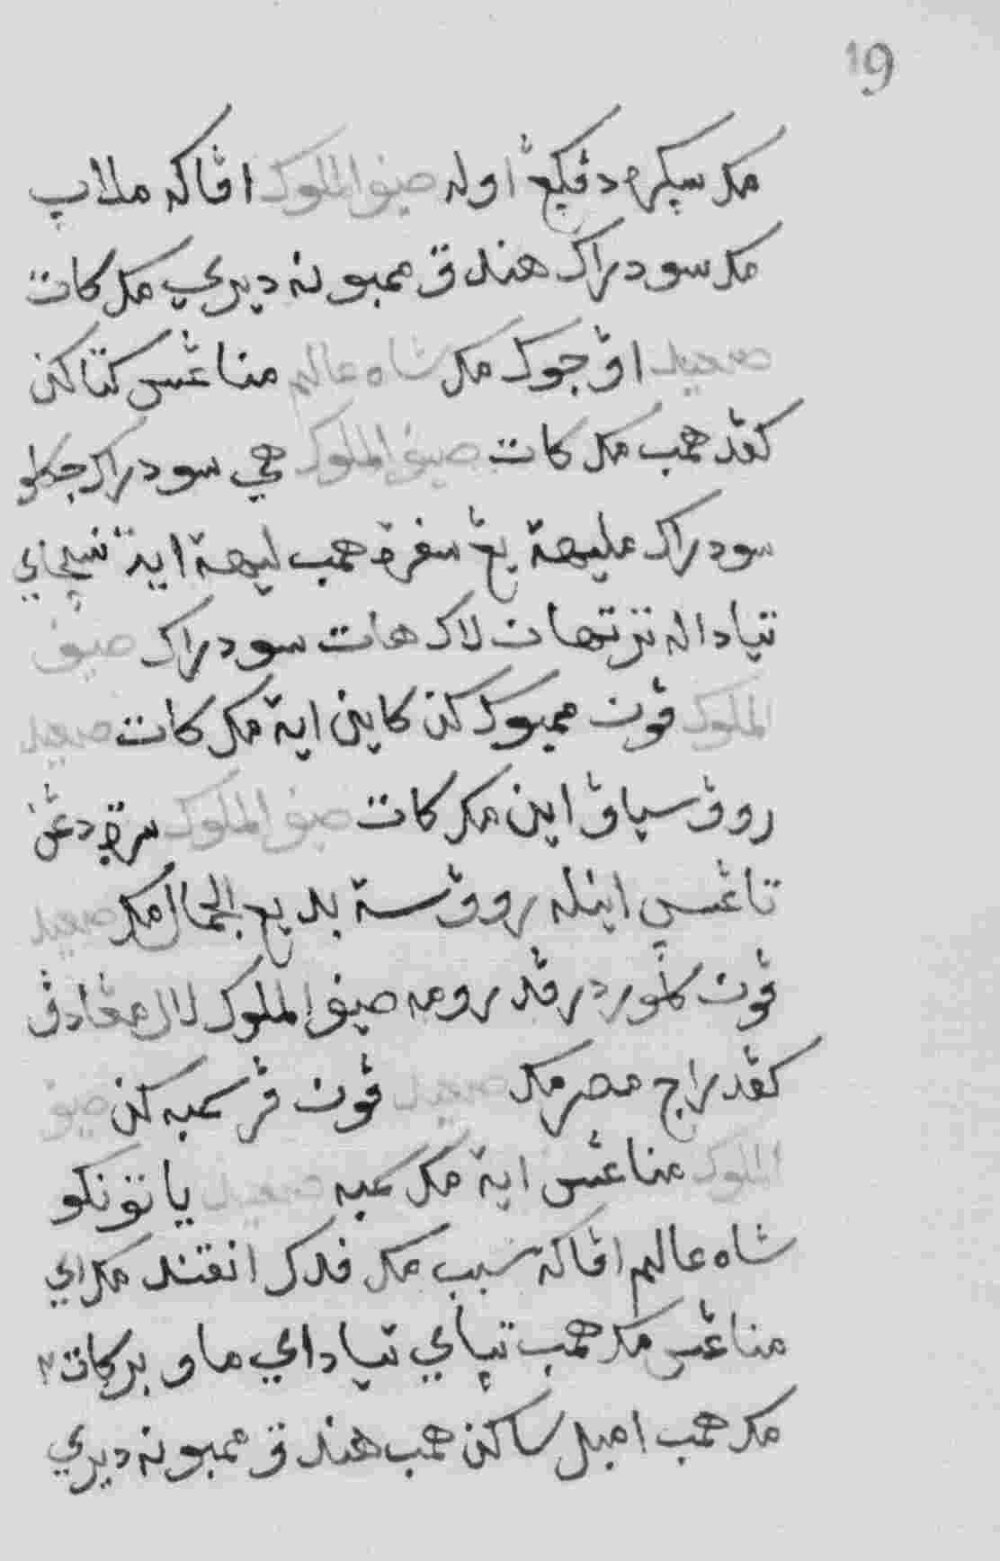 19
مک سڬره دڤڬڠ اوله صيف الملوک اڤاکه ملاڤ
مک سودراک هندق ممبونه ديري مک کات
صعيد اڤ جوک مک شاه عالم مناڠس کتاکن
کڤد همب مک کات صيف الملوک هي سودراک جکلو
سودراک مليهة يڠ سفرة همب ليهة ايت نسچاي
تياداله ترتهان لاک هات سودراک صيف
الملوک ڤون ممبوککن کاين ايت مک کات صعيد
روڤ سياڤ اين مک کات صيف الملوک سرت دڠن
تاڠس اينله روڤ ست بديع الجمال مک صعيد
ڤون کلور در ڤد رومه صيف الملوک لال مڠادڤ
کڤد راج مصر مک صعيد ڤون ڤرسمبهکن صيف
الملوک مناڠس ايت مک سمبه صعيد يا توانکو
شاه عالم اڤاکه سبب مک ڤدک انقند مک اي
مناڠس مک همب تڽاي تياد اي ماو برکات٢
مک همب امبل ساکن همب هندق ممبونه ديري